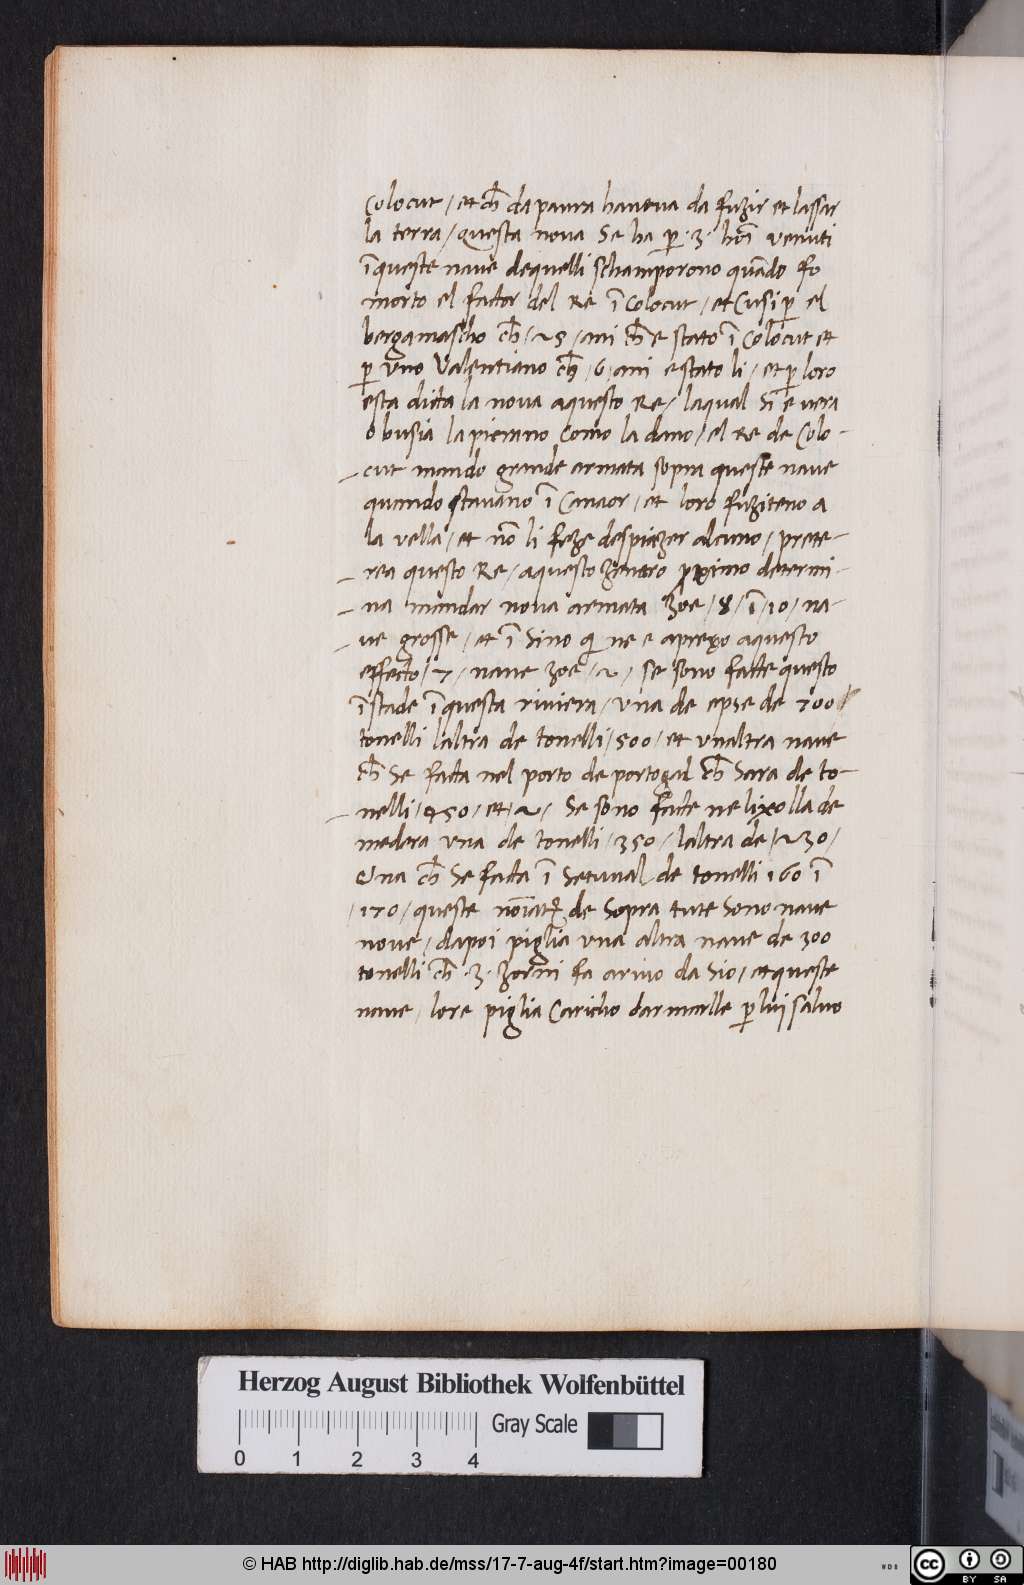 Colocut / et ch̄ da paura haveua da fuzir et lassar
la terra / questa noua Se ha ꝑ ·3· hoī venuti
ī queste naue de quelli schamporono quādo fo
morto el factor del Re ī Colocut / et Cusi ꝑ el
bergamascho ch̄ / 25 / ani ch̄ e stato ī Colocut et
ꝑ vno Valentiano ch̄ / 6 / ani e stato li / et ꝑ loro
esta dicta la noua aquesto Re / laqual Si e uera
o busia la pierano Como la dano / el Re de Colo-
-cut mando grande armata sopra queste naue
quando stauano ī Canaor / et loro fuziteno a
la vella / et nō li feze despiazer alcuno / prete-
-rea questo Re / aquesto zenaro proximo determi-
-na mandar noua armata zoe / 8 / ī / 10 / na-
-ue grosse / et ī Sino qi ne e aprexo aquesto
effecto / 7 / naue zoe / 2 / se sono facte questo
ī stade ī questa riuiera / vna de epse de 700 /
tonelli laltra de tonelli / 500 / et vnaltra naue
ch̄ Se facta nel porto de portogal ch̄ Sara de to-
-nelli / 450 / et / 2 / Se sono facte ne lixolla de
medera vna de tonelli / 350 / laltra de / 230 /
Vna ch̄ Se facta ī Setuual de tonelli 160 ī
/ 170 / queste noīate de Sopra tute Sono naue
noue / dapoi piglia vna altra naue de 300
tonelli ch̄ ·3· zorni fa ariuo da Sio / et queste
naue / lo re piglia Caricho darmarlle ꝑ lui saluo
Herzog August Bibliothek Wolfenbüttel
Gray Scale
0 1 2 3 4
© HAB http://diglib.hab.de/mss/17-7-aug-4f/start.htm?image=00180
WDB
cc BY SA